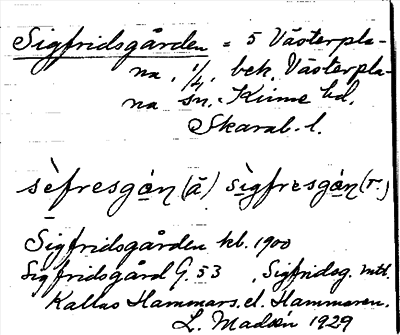 Sigfridsgården = 5 Västerpla-
na, 1/4, bek. Västerpla-
na sn. Kinne hd.
Skarab. l.
sèfresgán (ā) sìgfresgán (r.)
Sigfridsgården kb. 1900
Sigfridsgård G. 53, Sigfridsg. mtl.
Kallas Hammars. el. Hammaren.
L. Madsén 1929